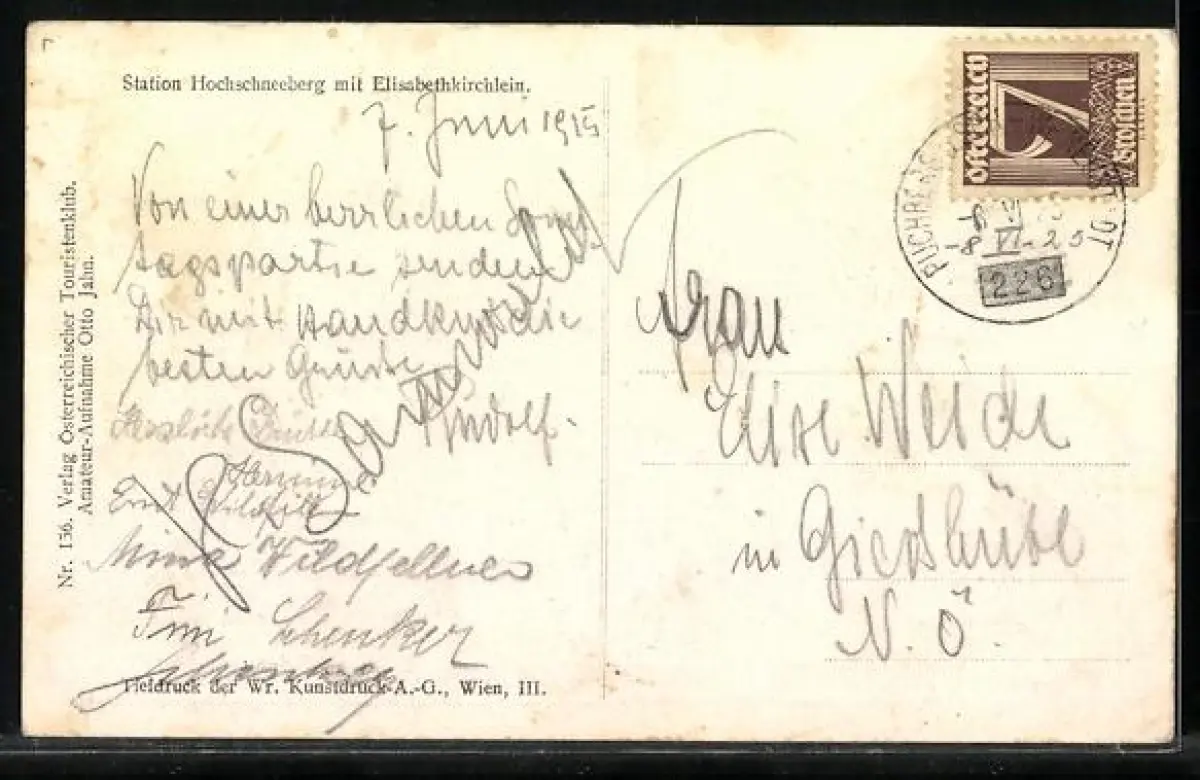 Station Hochschneeberg mit Elisabethkirchlein.
7. Juni 1925
Von einer herrlichen Sonn-
tagspartie senden
Dir mit Handkuss die
besten Grüsse
Rudolf.
Herzliche Grüsse
Ernst
Mina Wildfellner
Fini Schenker
Tiefdruck der Wr. Kunstdruck-A.-G., Wien, III.
Nr. 156. Verlag Österreichischer Touristenklub.
Amateur-Aufnahme Otto Jahn.
Österreich
7
Groschen
PUCHBERG
-8 VI-25
226
Frau
Elise Weide
in Giesshübl
N. Ö.